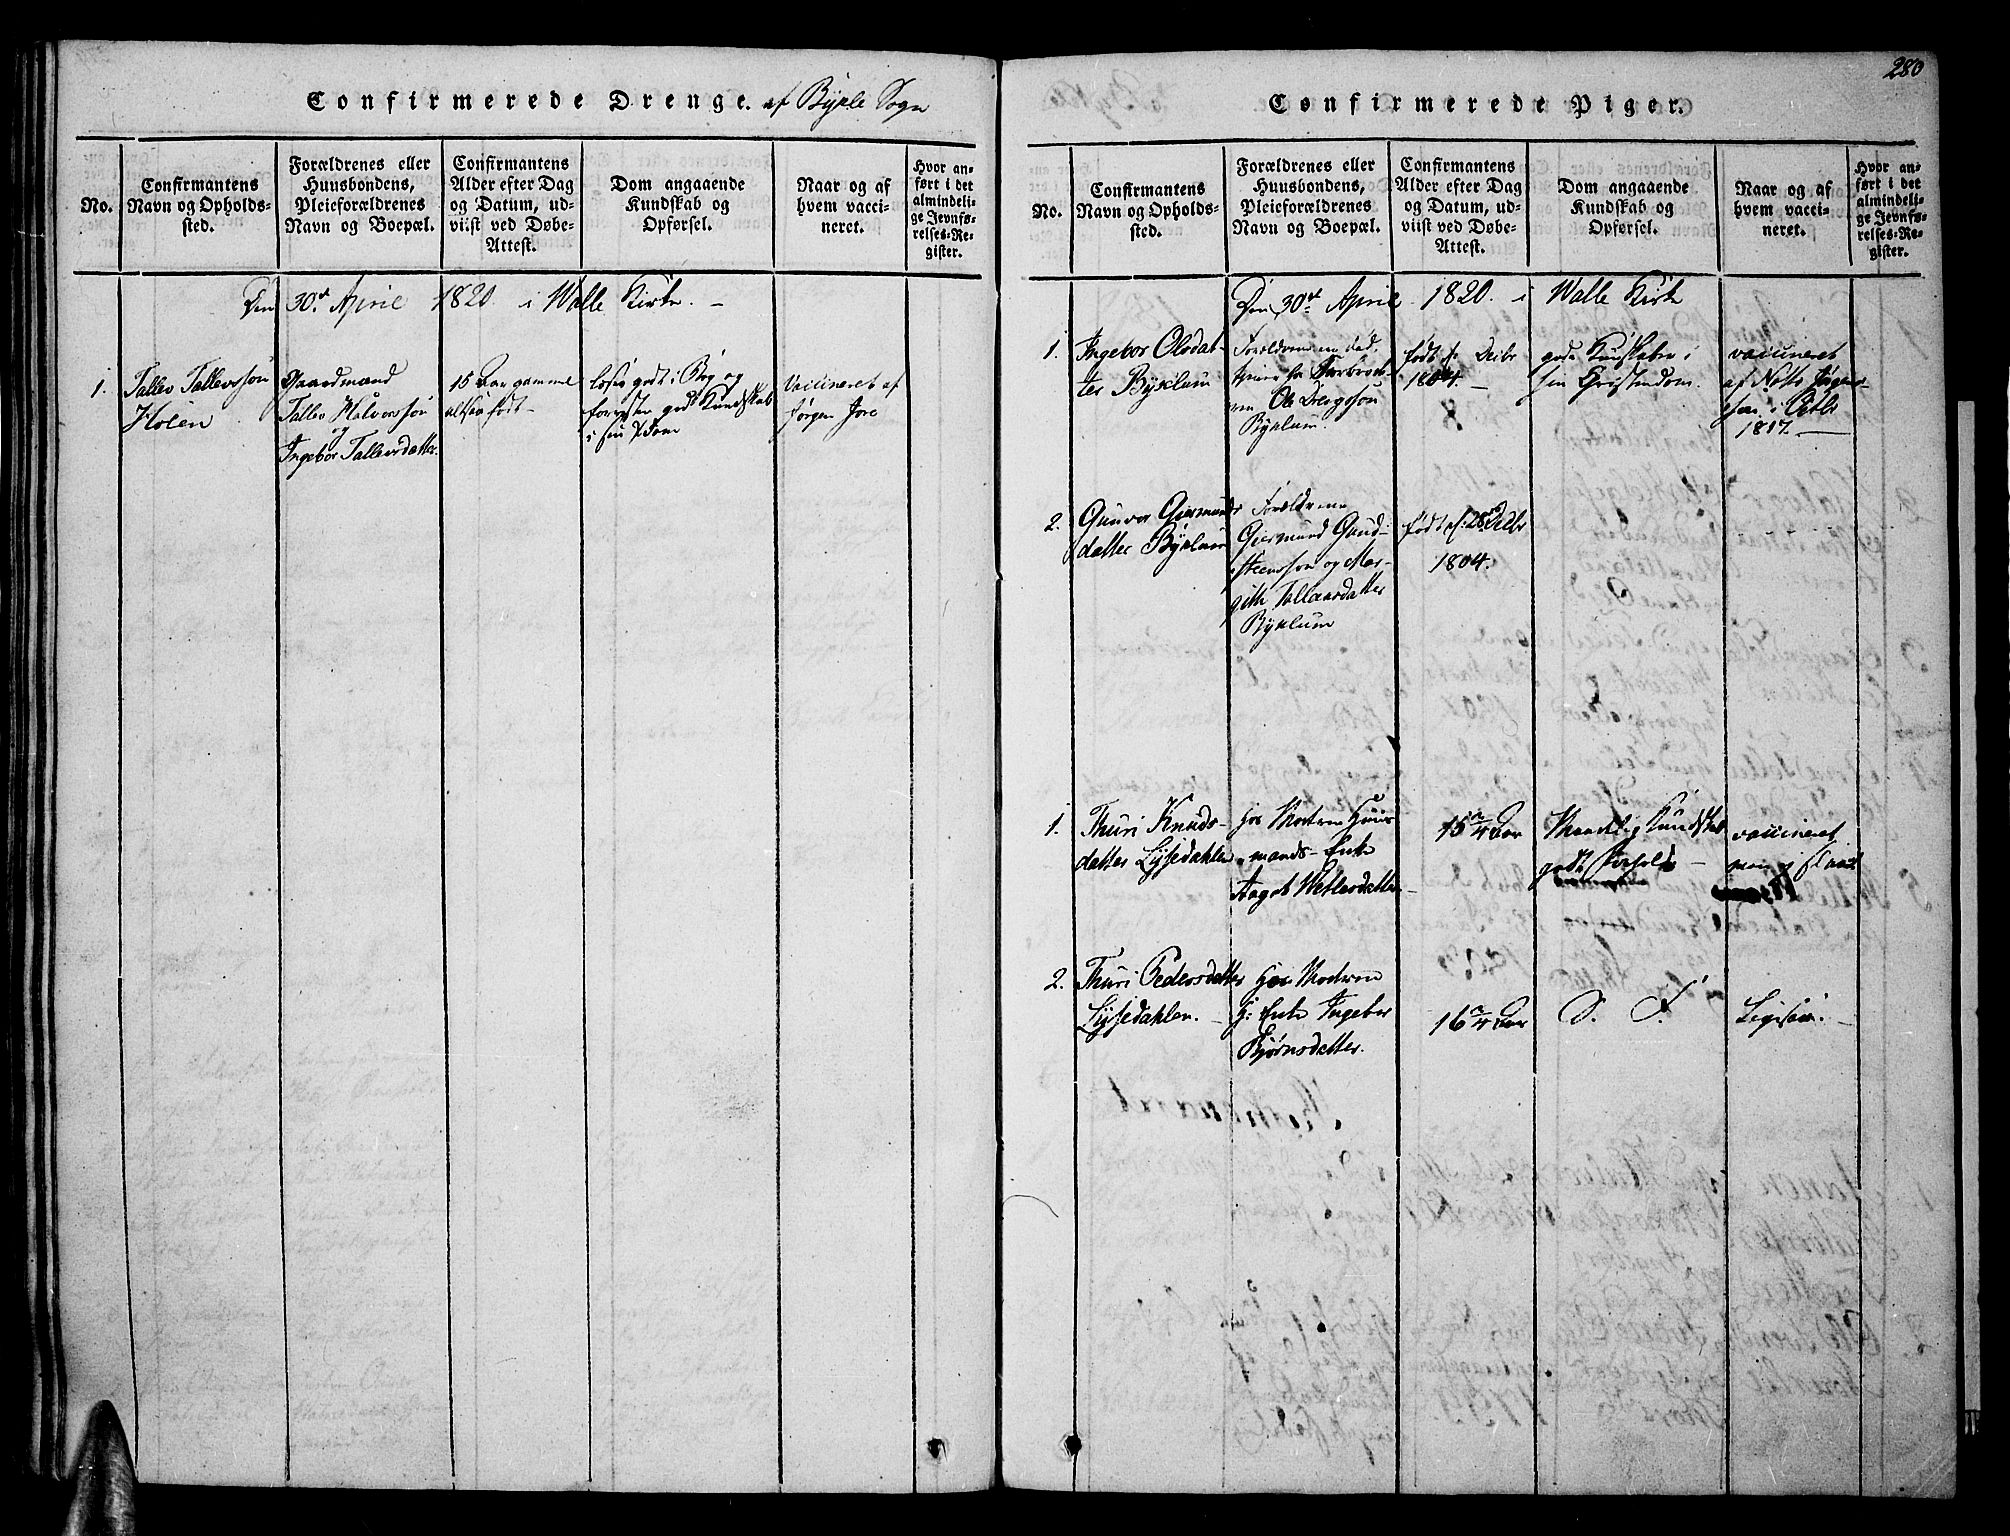 Confirmerede Drenge. af Bykle Sogn
No.
Confirmantens
Navn og Opholds-
sted.
Forældrenes eller
Huusbondens,
Pleieforældrenes
Navn og Boepæl.
Confirmantens
Alder efter Dag
og Datum, ud-
viist ved Døbe-
Attest.
Dom angaaende
Kundskab og
Opførsel.
Naar og af
hvem vacci-
neret.
Hvor an-
ført i det
almindeli-
ge Jevnfø-
relses-Re-
gister.
Den 30te April 1820. i Walle Kirke. -
1.
Tallev Tallevssøn
Holen
Gaardmand
Tallev Halvorssøn
og
Ingebor Tallevsdatter.
15 Aar gammel
altsaa født -
læser godt i Bog og
god Kundskab
i sin
Vaccineret af
Jørgen Jore
280
Confirmerede Piger.
No.
Confirmantens
Navn og Opholds-
sted.
Forældrenes eller
Huusbondens,
Pleieforældrenes
Navn og Boepæl.
Confirmantens
Alder efter Dag
og Datum, ud-
viist ved Døbe-
Attest.
Dom angaaende
Kundskab og
Opførsel.
Naar og af
hvem vacci-
neret.
Hvor an-
ført i det
almindeli-
ge Jevnfø-
relses-Re-
gister.
Den 30te April 1820. i Walle Kirk
1.
Ingebor Olsdat-
ter Byklum
Forældrene ere død,
Ole Drengssøn
Byklum.
født
1804. -
gode Kundskaber i
sin Christendom.
vaccineret
af Jørgens-
søn i Octbr
1817. -
2.
Gunvor Giermunds
datter Byklum
Forældrene
Giermund Gund-
steenssøn og Mar-
gith Tallaasdatter
Byklum
født d: 28de
1804.
1.
Thuri Knuds-
datter Lysedahlen
hos Modren Huus
mands-Enke
Aagot Wetlesdatter
15 2/4 Aar
Maadelig Kundskab
godt Forhold -
vaccineret
2.
Thuri Pedersdatter
Lysedahlen. -
Hos Modren
H: Enke Ingebor
Bjørnsdatter.
16 2/4 Aar
S. F.
Ligesaa. -